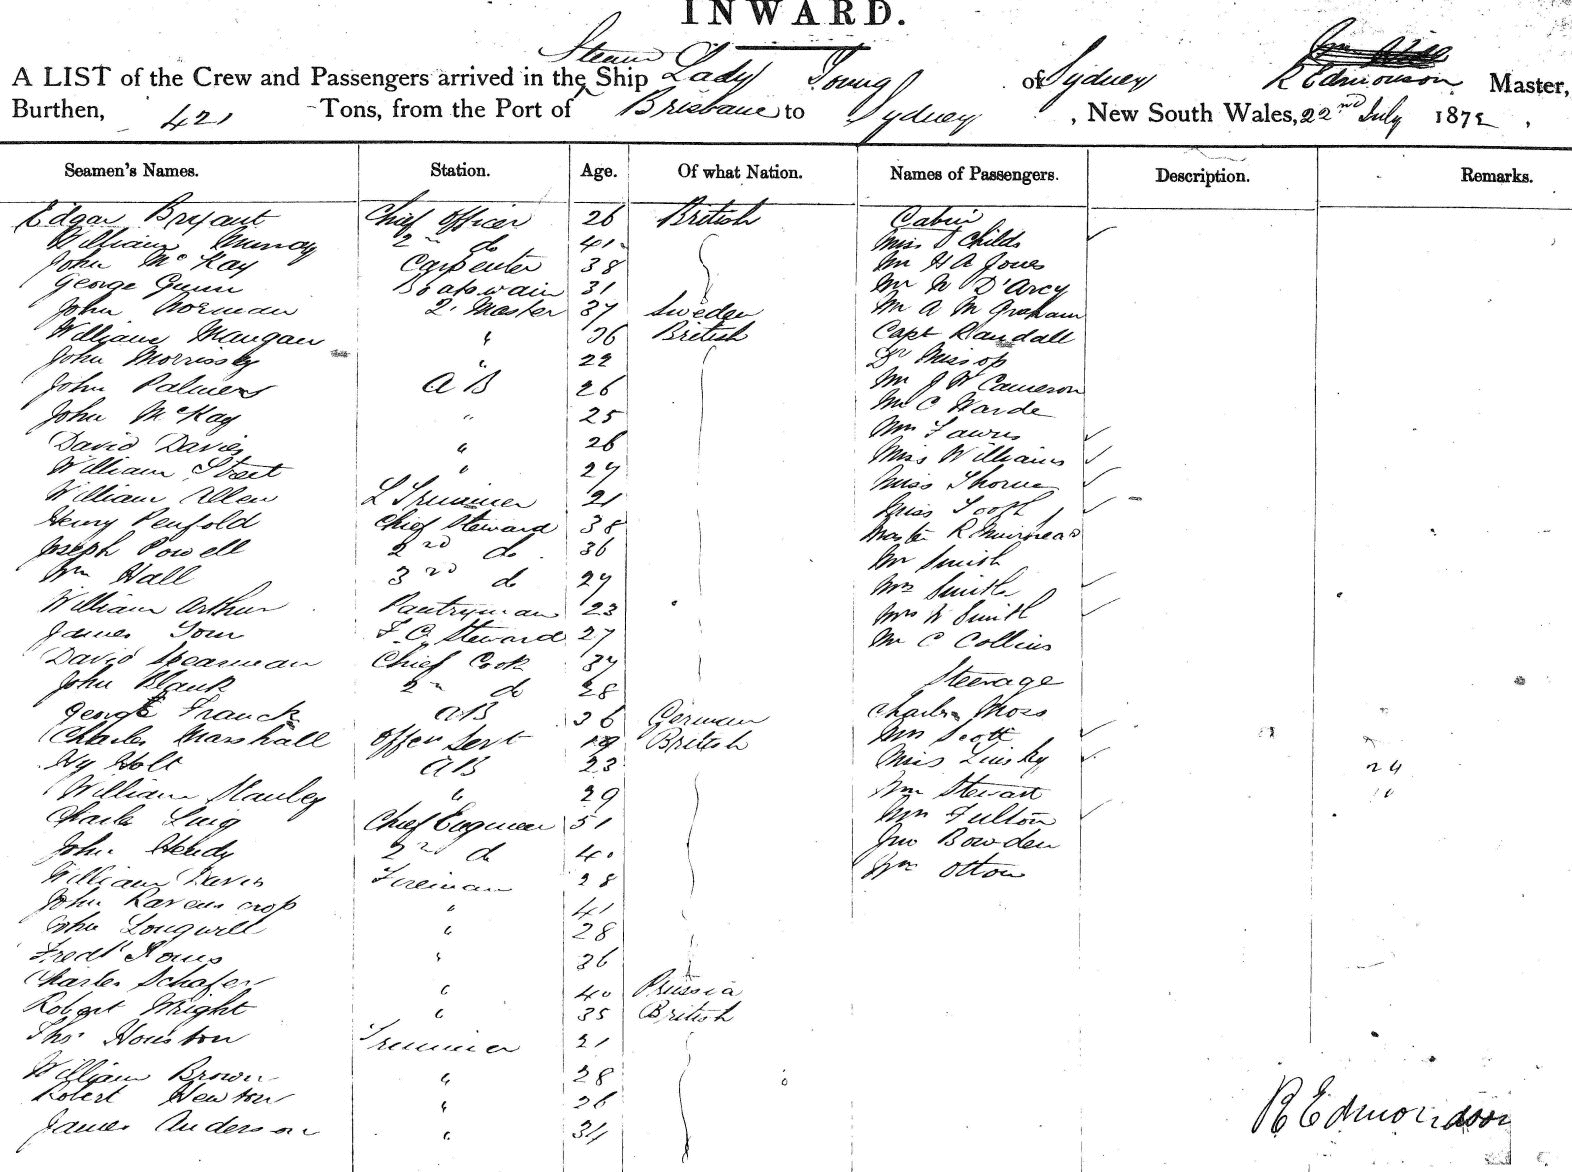 INWARD.
A LIST of the Crew and Passengers arrived in the Steam Ship Lady Young of Sydney R Edmonson Master,
Burthen, 421 Tons, from the Port of Brisbane to Sydney, New South Wales, 22nd July 1872,
Seamen's Names. Station. Age. Of what Nation. Names of Passengers. Description. Remarks.
Edgar Bryant Chief Officer 26 British Cabin
William Murray 2nd do 41 Miss Childs
John McKay Carpenter 38 Mr H A Jones
George Gunn Boatswain 31 Mr W D'Arcy
John Norman 2. Master 37 Sweden Mr A M Graham
William Mangan " 36 British Capt Randall
John Morrissey " 22 Dr
John Palmers A B 26 Mr J W Cameron
John McKay " 25 Mr C Warde
David Davies " 26 Mrs
William Street " 27 Miss Williams
William Allen L Trimmer 21 Miss Thorne
Henry Penfold Chief Steward 38 Miss Tooth
Joseph Powell 2nd do 36 Master R Muirhead
Wm Hall 3rd do 27 Mr Smith
William Arthur Pantryman 23 Mrs Smith
James Tom F.C. Steward 27 Mrs W Smith
David Spearman Chief Cook 37 Mr C Collins
John Blank 2nd do 28 Steerage
George Franck AB 36 German Charles Moss
Charles Marshall Offcrs Servt 19 British Mrs Scott
Hy Holt AB 23 Miss 24
William Stanley " 29 Wm Stewart
Charles Chief Engineer 51 Mrs Fulton
John Hendy 2nd do 40 Jno Bowden
William Davis Fireman 28 Wm Otton
John Ravenscrop " 41
John Longwill " 28
Fredk " 36
Charles Schafer " 40 Prussia
Robert Wright " 35 British
Thos Houston Trimmer 21
William Brown " 28
Robert Newton " 26
James Anderson " 34
R Edmondson